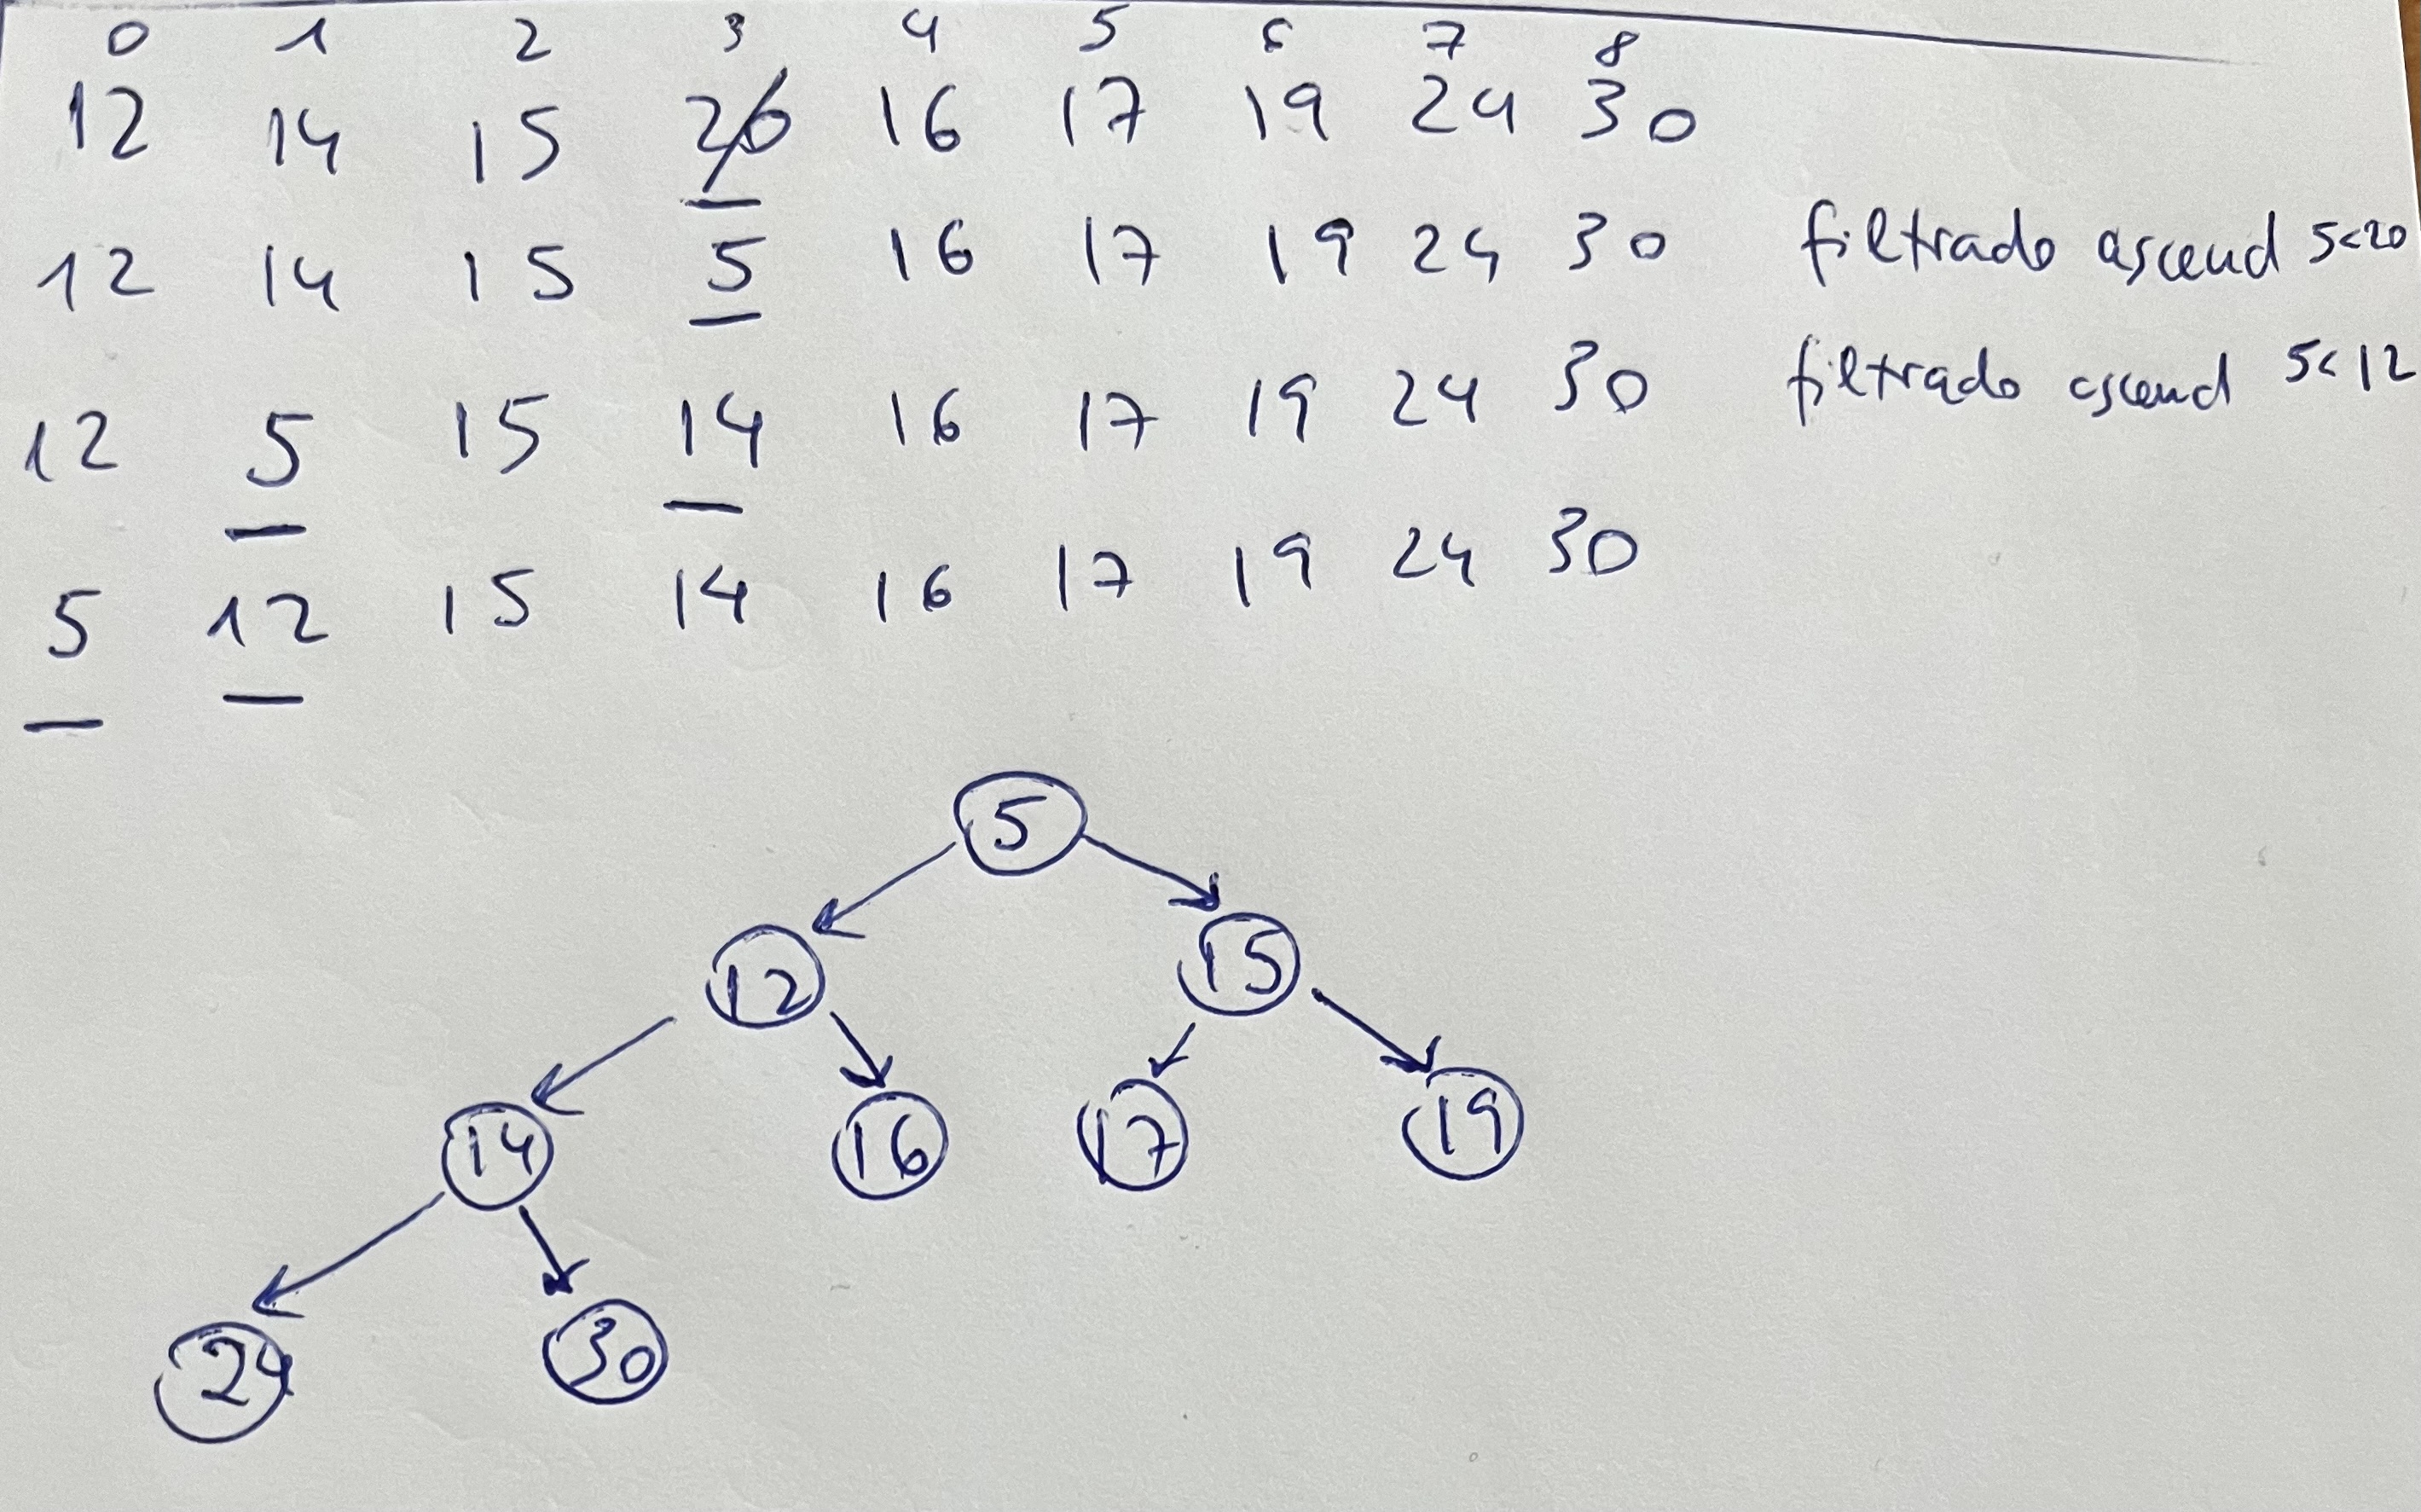 0 1 2 3 4 5 6 7 8
12 14 15 20 16 17 19 24 30
12 14 15 5 16 17 19 24 30 filtrado ascend 5<20
12 5 15 14 16 17 19 24 30 filtrado ascend 5<12
5 12 15 14 16 17 19 24 30
5
12 15
14 16 17 19
24 30